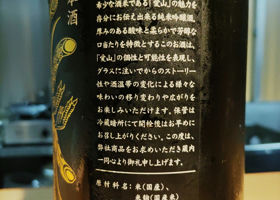 本酒
希少な酒米である「愛山」の魅力を
存分にお伝え出来る純米吟醸酒。
厚みのある酸味と柔らかで芳醇な
口当たりを特徴とするこのお酒は、
「愛山」の個性と可能性を表現し、
グラスに注いでからのストーリー
性や酒温帯の変化による様々な
味わいの移り変わりや広がりを
お楽しみいただけます。保管は
冷蔵暗所にて開栓後はお早めに
お召し上がりください。この度は、
弊社商品をお求めいただき蔵内
一同心より御礼申し上げます。
原材料名：米(国産)、
米麹(国産米)